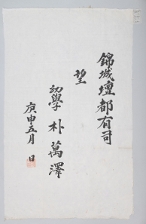 錦城壇都有司
望
幼學 朴萬澤
庚申五月 日